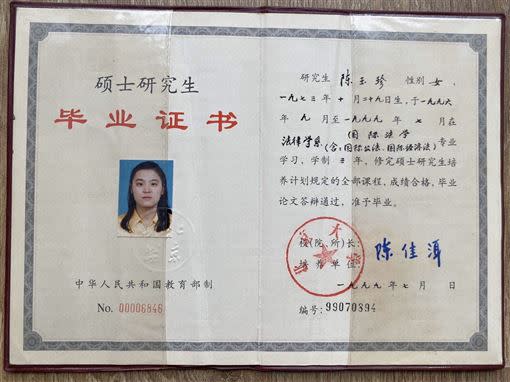 硕士研究生
毕业证书
中华人民共和国教育部制
No. 00006846
研究生 陈玉珍 性别 女,
一九七三年 十 月二十九日生,于一九九六
年 九 月至一九九九 年 七 月在
法律学系 国际法学(含:国际公法、国际经济法)专业
学习,学制 三 年,修完硕士研究生培
养计划规定的全部课程,成绩合格,毕业
论文答辩通过,准予毕业。
校(院、所)长:
陈佳洱
培养单位:
一九九九 年 七 月 日
编号:99070894